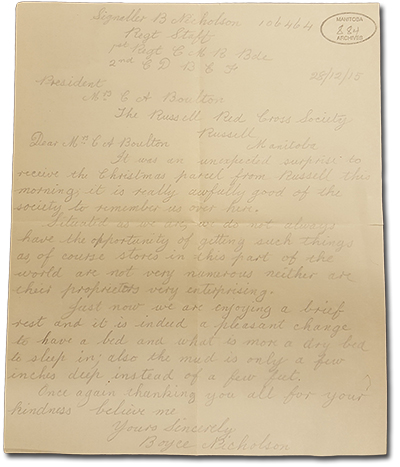 Signaller B Nicholson 106464
Regt Staff
1st Regt C M R Bde
2nd C D B E F
MANITOBA
ARCHIVES
28/12/15
President
Mrs C A Boulton
The Russell Red Cross Society
Russell
Manitoba
Dear Mrs C A Boulton
It was an unexpected surprise to
receive the Christmas parcel from Russell this
morning, it is really awfully good of the
society to remember us over here.
Situated as we are, we do not always
have the opportunity of getting such things
as of course stores in this part of the
world are not very numerous neither are
their proprietors very enterprising.
Just now we are enjoying a brief
rest and it is indeed a pleasant change
to have a bed and what is more a dry bed
to sleep in; also the mud is only a few
inches deep instead of a few feet.
Once again thanking you all for your
kindness believe me
Yours Sincerely
Boyce Nicholson